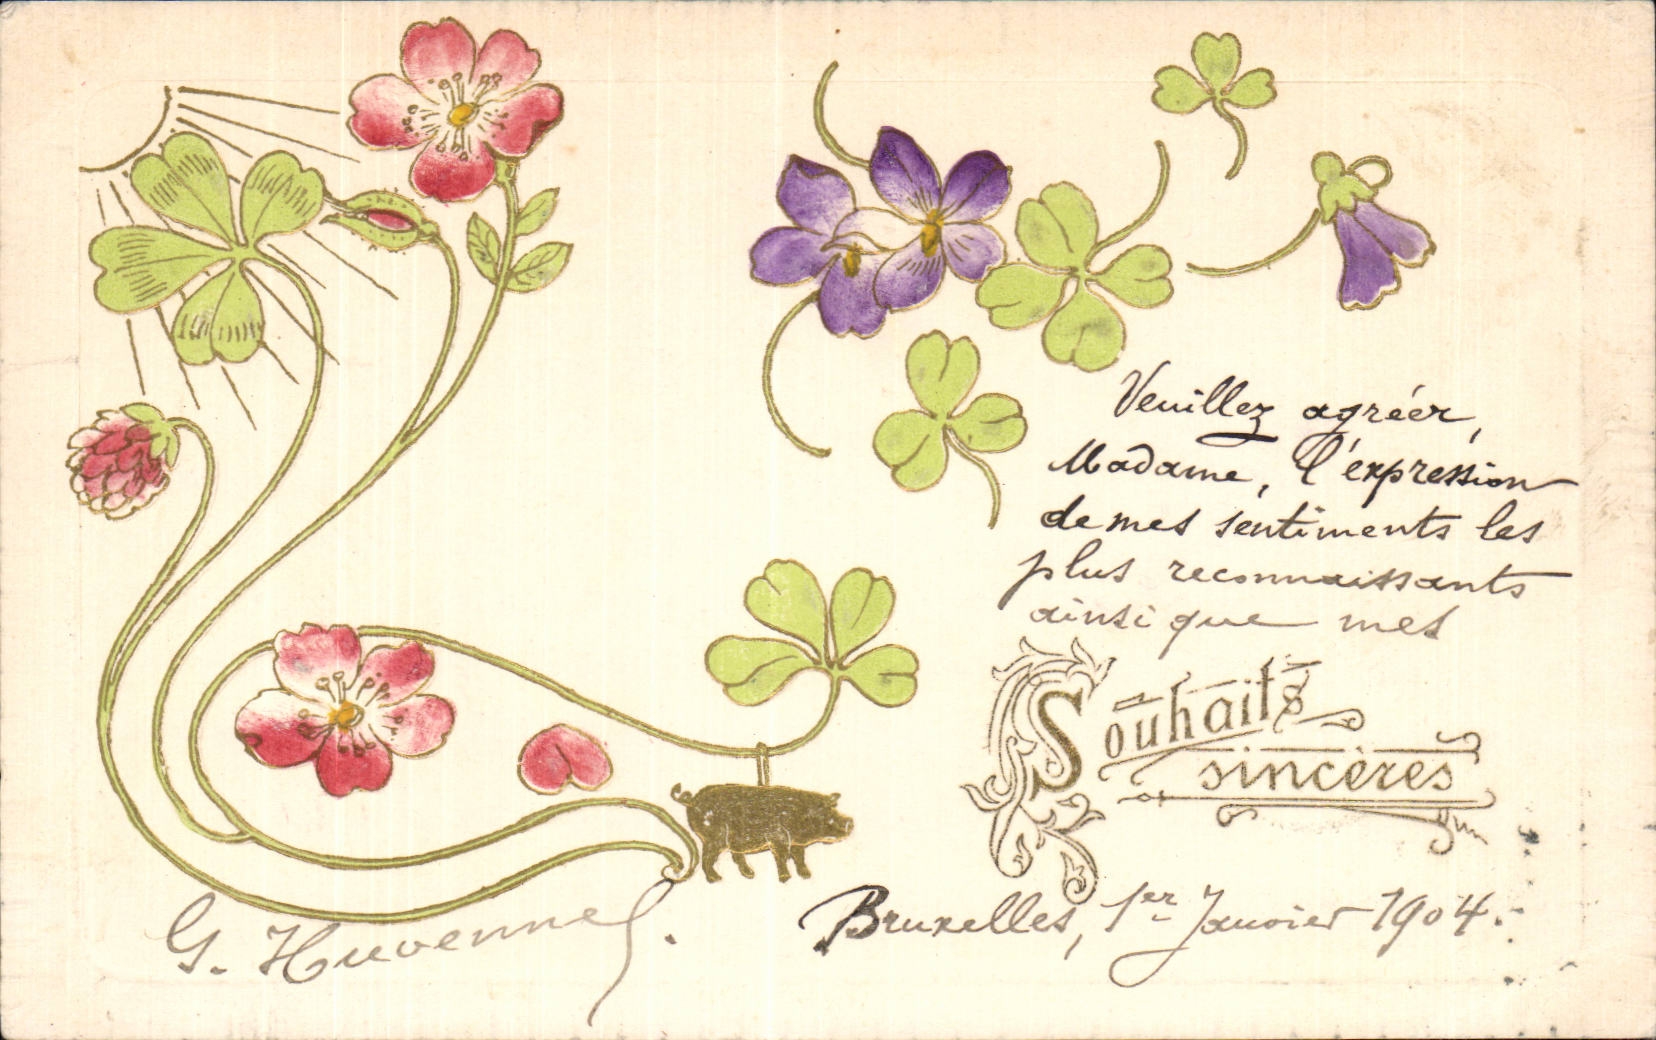 Veuillez agréer,
Madame, l'expression
de mes sentiments les
plus reconnaissants
ainsi que mes
Souhaits
sincères
Bruxelles, 1er Janvier 1904.
G. Huvenne